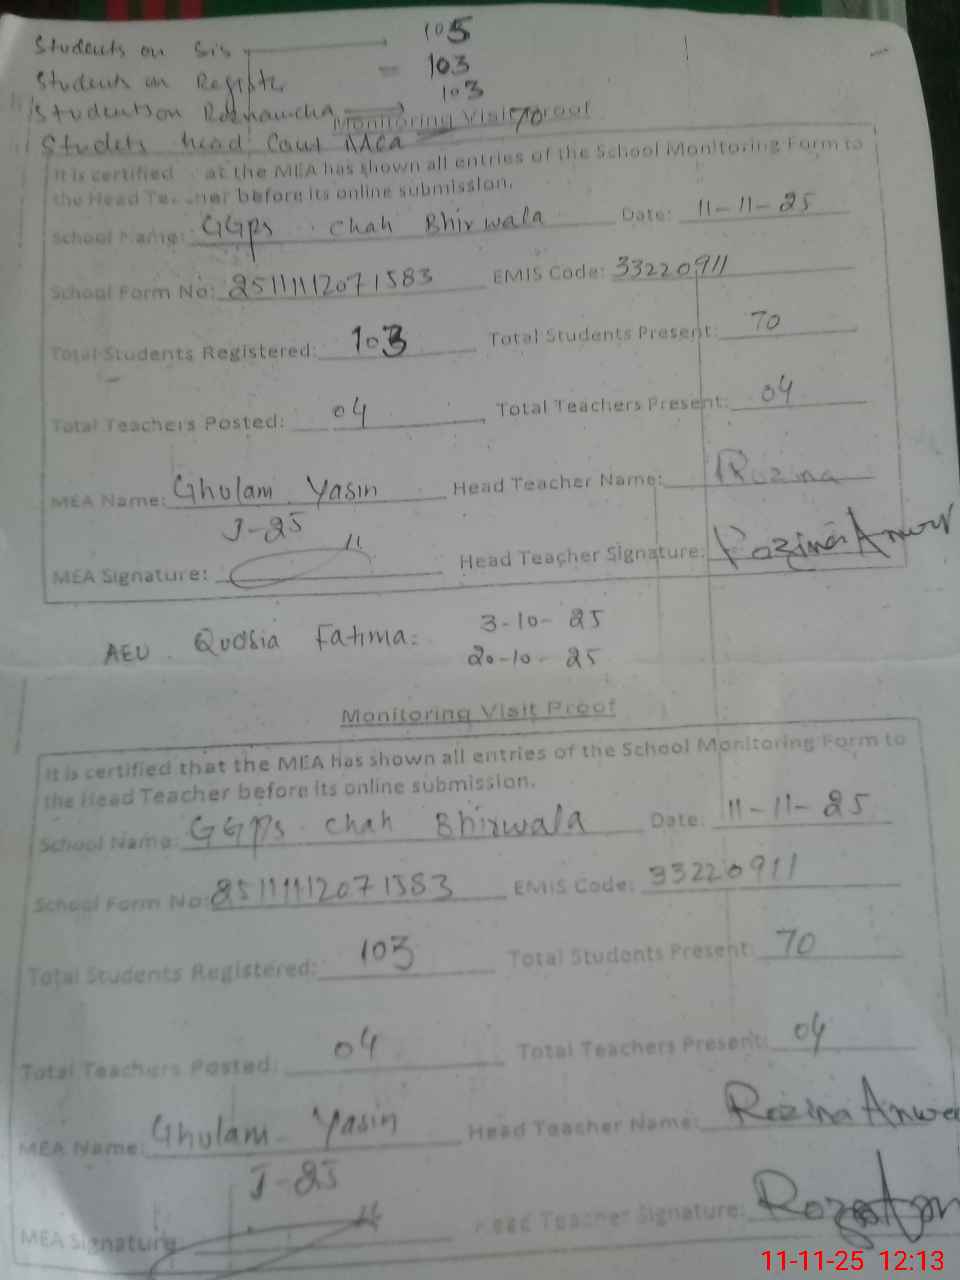 Students on Sis → 105
Students on Registe = 103
Students on Roznamcha → 103
Monitoring Visit Proof
Studets head Coun MEA 70
It is certified at the MEA has shown all entries of the School Monitoring Form to
the Head Teacher before its online submission.
School Name: GGps Chah Bhirwala Date: 11-11-25
School Form No: 2511111207 1583 EMIS Code: 33220911
Total Students Registered: 103 Total Students Present: 70
Total Teachers Posted: 04 Total Teachers Present: 04
MEA Name: Ghulam Yasin Head Teacher Name: Rozina
J-25
MEA Signature: Head Teacher Signature: Rozina Anwar
AEO Qudsia Fatima: 3-10-25
20-10-25
Monitoring Visit Proof
It is certified that the MEA has shown all entries of the School Monitoring Form to
the Head Teacher before its online submission.
School Name: GGPS Chah Bhirwala Date: 11-11-25
School Form No: 2511111207 1583 EMIS Code: 33220911
Total Students Registered: 103 Total Students Present: 70
Total Teachers Posted: 04 Total Teachers Present: 04
MEA Name: Ghulam Yasin Head Teacher Name: Rozina Anwa
J-25
MEA Signature Head Teacher Signature:
11-11-25 12:13